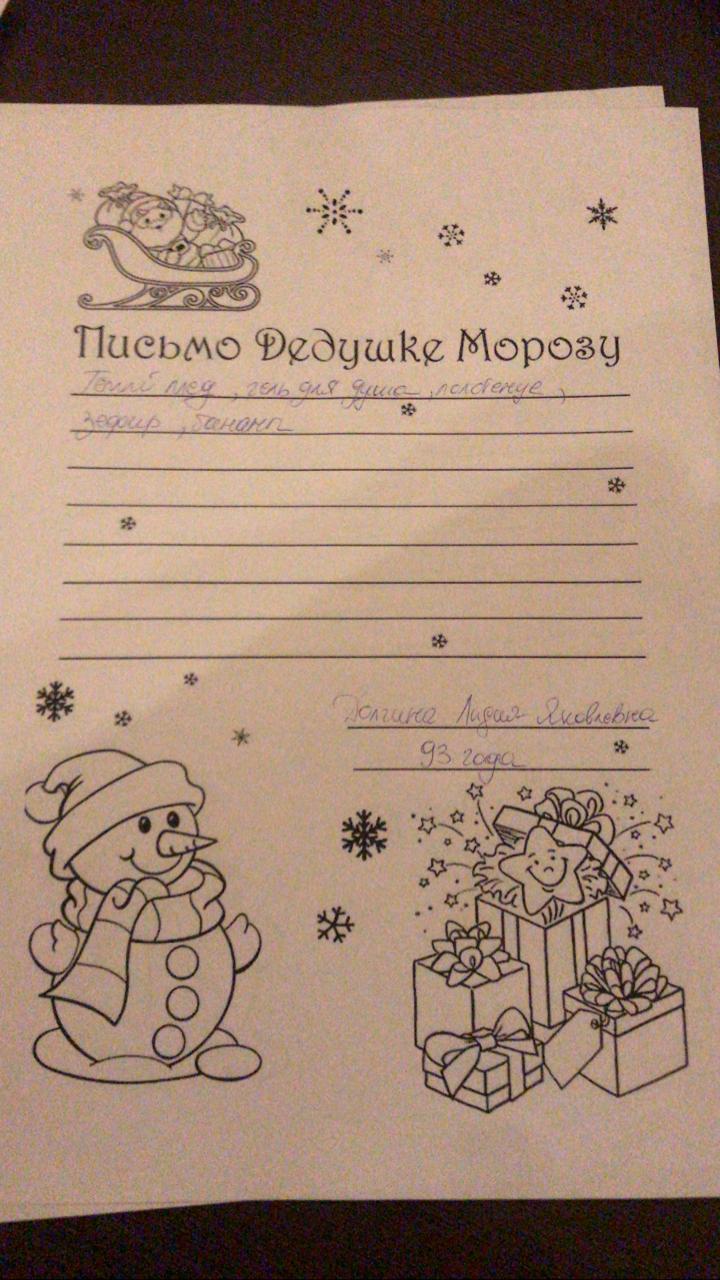 Письмо Дедушке Морозу
Теплый плед, гель для душа, полотенце,
зефир, бананы
Долгина Лидия Яковлевна
93 года